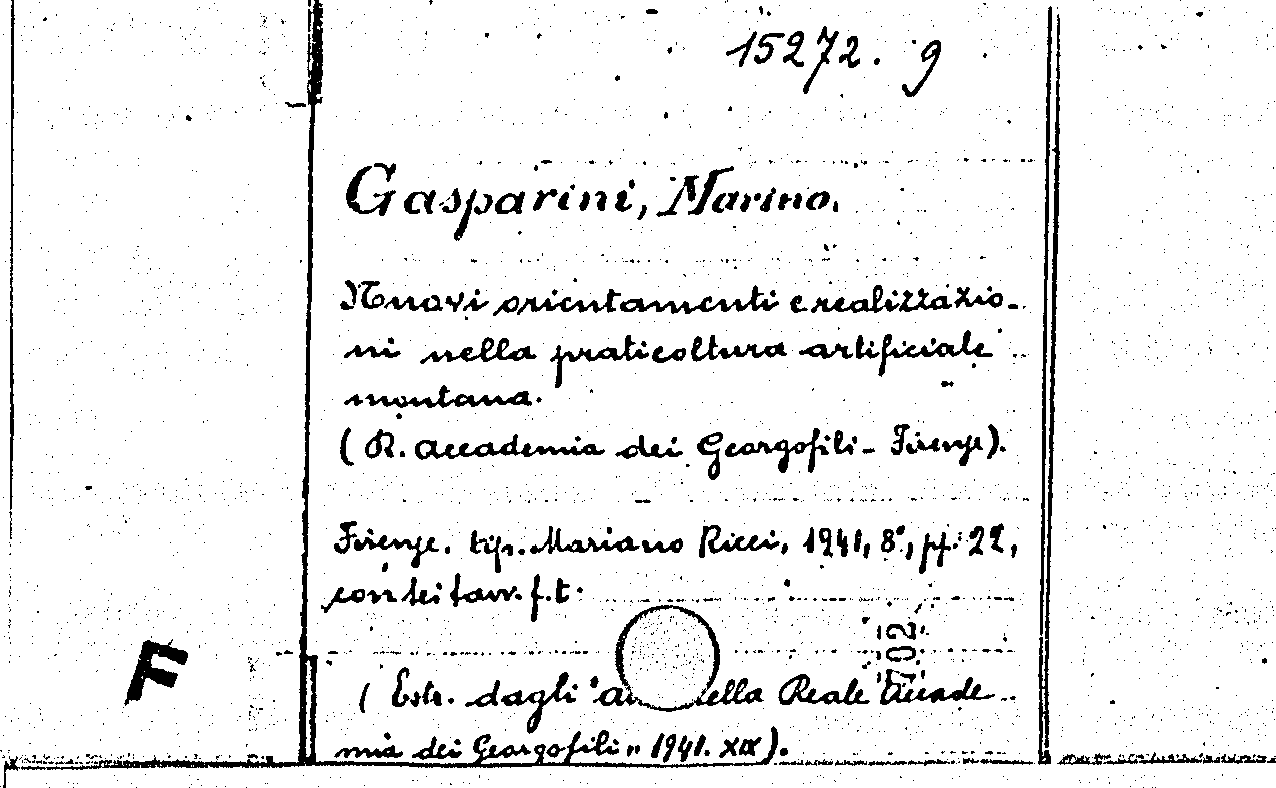 15272. 9
Gasparini, Marino.
Nuovi orientamenti e realizzazio-
ni nella praticoltura artificiale
montana.
(R. Accademia dei Georgofili - Firenze).
Firenze. tip. Mariano Ricci, 1941, 8°, pp. 22,
con tavv. f. t.
702
F
(Estr. dagli "della Reale Accade
mia dei Georgofili" 1941. XIX).